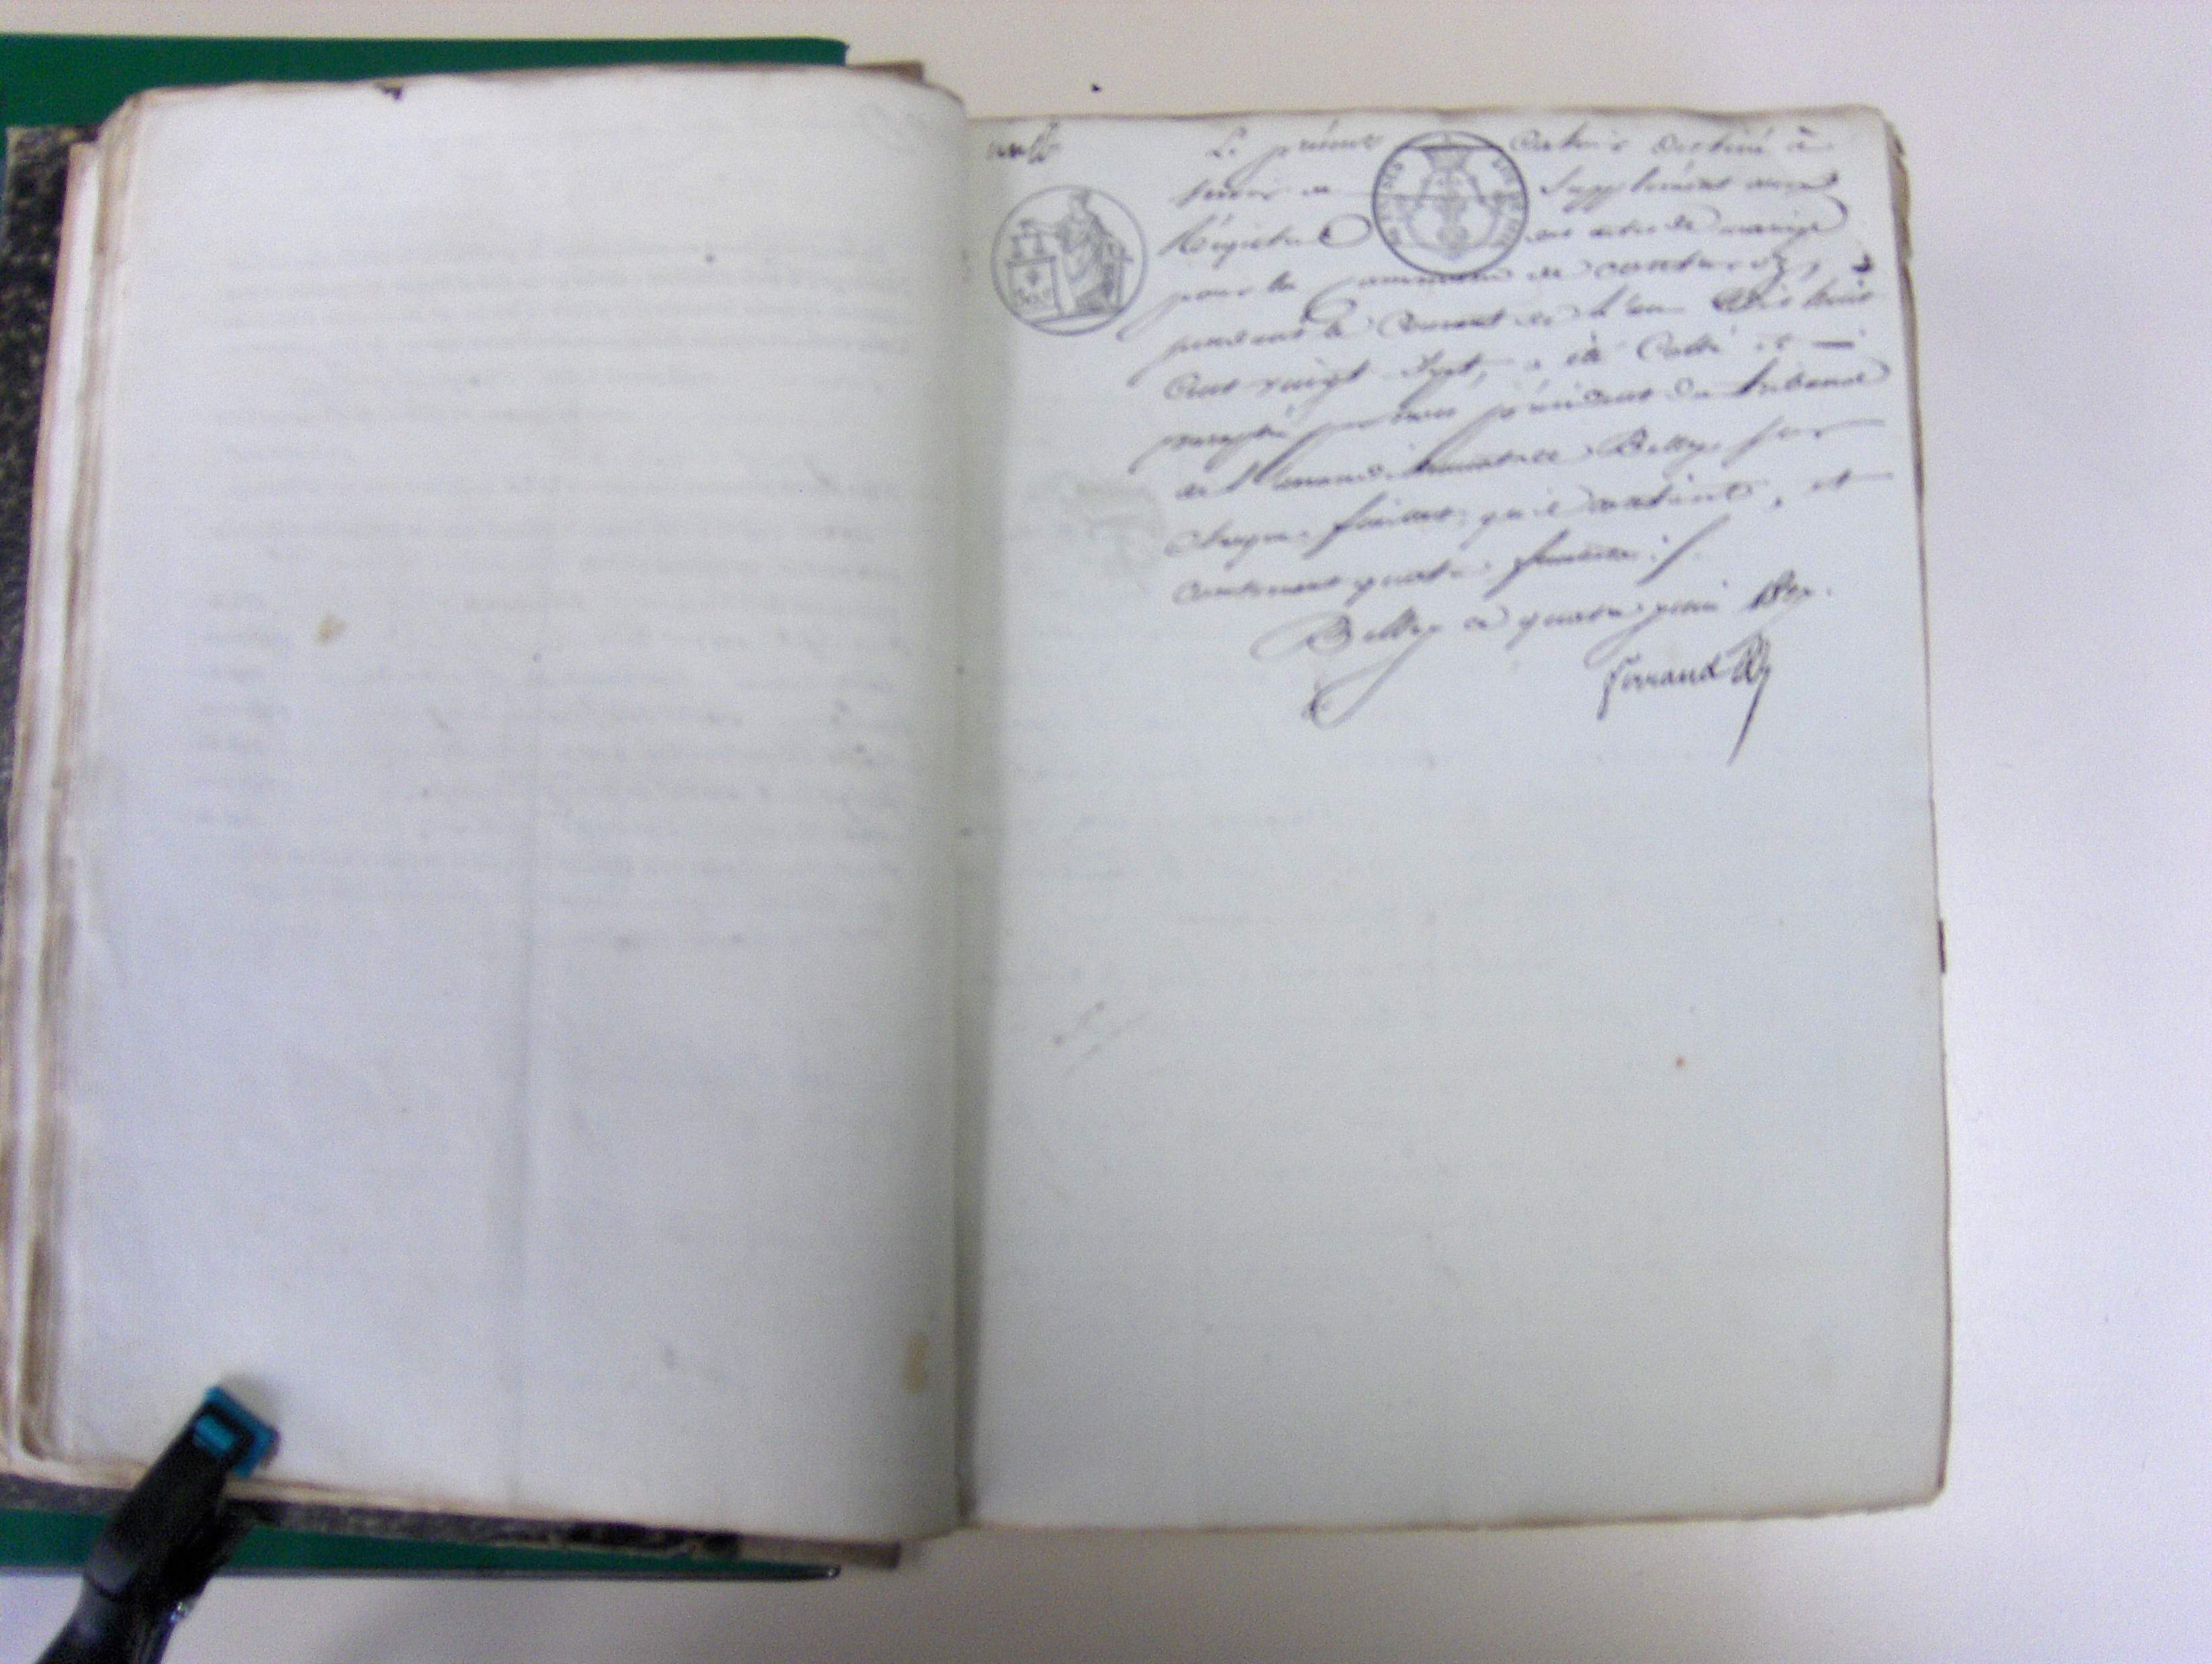 Le présent cahier destiné à
servir de supplément aux
Régistres des actes de mariage
pour la commune de
pendant le courant de l'an dix huit
cent vingt sept, a été Cotté et
paraphé par nous président du tribunal
de l'arrondissement de Belley, sur
chaque feuillet qu'il contient, et
contenant quatre feuillets
Belley ce quatre juin 1827.
Ferrand